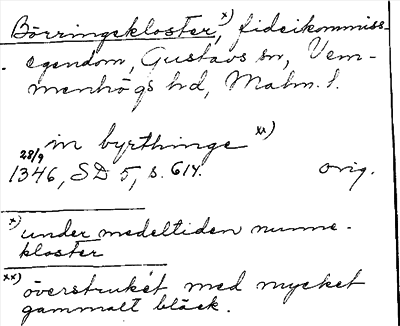 Börringekloster,x) fideikommiss-
egendom, Gustavs sn, Vem-
menhögs hd, Malm. l.
in byrthinge xx)
28/9
1346, SD 5, s. 614. orig.
x) under medeltiden nunne-
kloster
xx) överstruket med mycket
gammalt bläck.